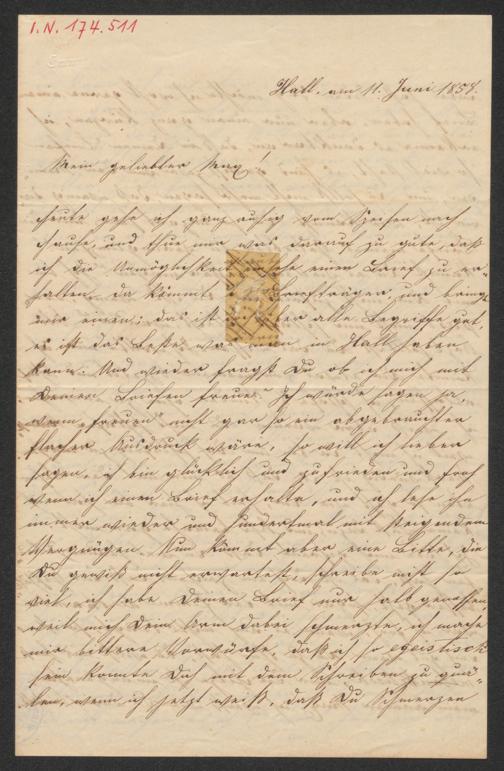 I.N. 174.511
Hall, am 11. Juni 1858.
Mein geliebter Max!
Heute gehe ich ganz ruhig vom Speisen nach
Hause, und thue mir was darauf zu gute, daß
ich die Unmöglichkeit einen Brief zu er-
halten, da kömmt Briefträger, und bringt
mir einen; das ist über alle Begriffe gut,
es ist das Beste was man in Hall haben
kann. Und wieder fragst Du ob ich mich mit
Deinen Briefen freue? Ich würde sagen ja,
wenn "freuen" nicht gar so ein abgebrauchter
flacher Ausdruck wäre, so will ich lieber
sagen, ich bin glücklich und zufrieden und froh
wenn ich einen Brief erhalte, und ich lese ihn
immer wieder und hundertmal mit steigendem
Vergnügen. Nun kömmt aber eine Bitte, die
Du gewiß nicht erwartest, schreibe nicht so
viel, ich habe Deinen Brief nur halb genossen,
weil mich Dein Arm dabei schmerzte, ich mache
mir bittere Vorwürfe, daß ich so egoistisch
sein konnte Dich mit dem Schreiben zu quä-
len, wenn ich jetzt weiß, daß Du Schmerzen